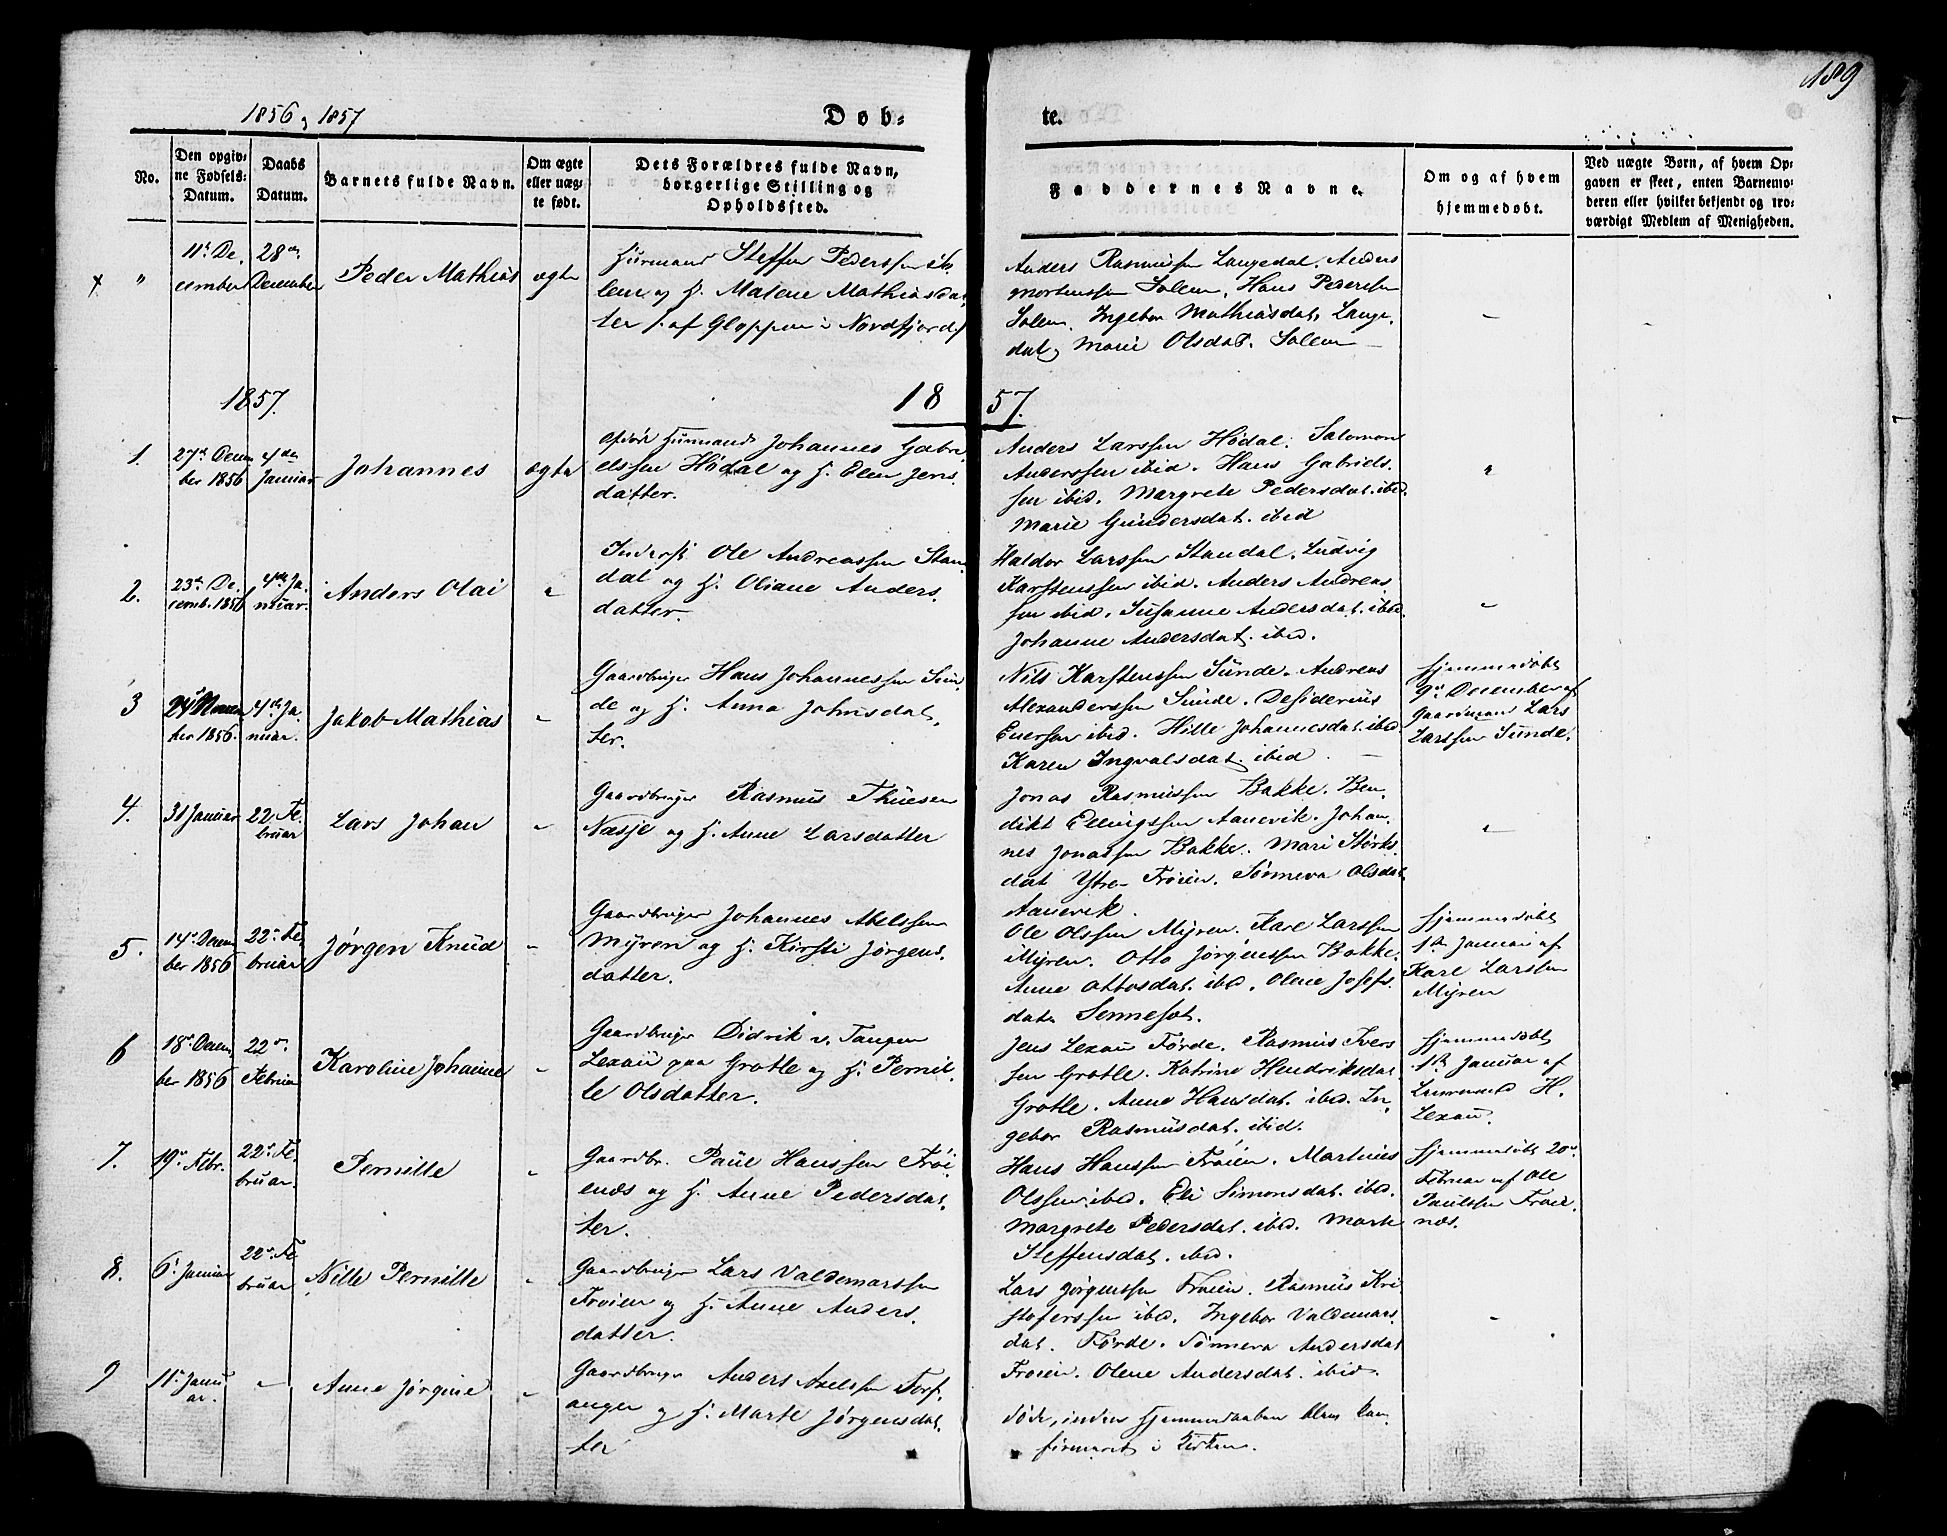 189
1856 og 1857
Døb-
te.
No.
Den opgiv-
ne Fødsels-
Datum.
Daabs
Datum.
Barnets fulde Navn.
Om ægte
eller uæg-
te født.
Dets Forældres fulde Navn,
borgerlige Stilling og
Opholdssted.
Faddernes Navne.
Om og af hvem
hjemmedøbt.
Ved uægte Børn, af hvem Op-
gaven er skeet, enten Barnemo-
deren eller hvilket bekjendt og tro-
værdigt Medlem af Menigheden.
"
11te De-
cember
28de
December
Peder Mathias
ægte
Huusmand Steffen Pederssen
og H. Malene Mathiasdat-
ter /: af Gloppen i Nordfjord :/
Anders Rasmussen Langedal, Anders
Mortenssen Solem, Hans Pederssen
Solem. Ingebor Mathiasdat. Lange-
dal, Marie Olsdat. Solem
1857.
18 57.
1.
27de Decem-
ber 1856
4de
Januar
Johannes
ægte
Huusmand Johannes Gabri-
elssen Hødal og H. Elen Jens-
datter.
Anders Larssen Hødal. Salomon
Anderssen ibid. Hans Gabriels-
sen ibid. Margrete Pedersdat. ibid.
Marie Gundersdat. ibid
2.
23de De-
cemb. 1856
4de Ja-
nuar.
Anders Olai
Inderst Ole Andreassen Stan-
dal og H. Oliane Anders-
datter.
Haldor Larssen Standal. Ludvig
Karstenssen ibid. Anders Andreas-
sen ibid. Susanne Andersdat. ibid.
Johanne Andersdat. ibid.
3
ber 1856.
4de Ja-
nuar.
Jakob Mathias
Gaardbruger Hans Johannessen Sun-
de og H. Anna Johnsdat-
ter.
Nils Karstenssen Sunde. Andreas
Alexanderssen Sunde. Desiderius
Enersen ibid. Hille Johannesdat. ibid
Karen Ingvalsdat. ibid
Hjemmedøbt
9de December af
Gaardmand Lars
Larssen Sunde.
4.
31 Januar
22 Fe-
bruar
Lars Johan
Gaardbruger Rasmus Thuesen
Næsje og H. Anne Larsdatter
Jonas Rasmussen Bakke. Ben-
dikt Ellingssen Aanevik. Johan-
nes Jonassen Bakke. Mari Størks-
dat Ytre-Frøien. Sønneva Olsdat.
Aanevik.
5.
14de Decem-
ber 1856
22de Fe-
bruar
Jørgen Knud
Gaardbruger Johannes Abelssen
Myren og H. Kirsti Jørgens-
datter.
Ole Olssen Myren. Kare Larssen
Myren. Otto Jørgenssen Bakke.
Anne Ottosdat. ibid. Olene Josefs-
dat. Senneset.
Hjemmedøbt
1ste Januar af
Kare Larssen
Myren
6
18de Decem-
ber 1856
22de
Februar
Karoline Johanne
Gaardbruger Didrik v. Tangen
Lexau paa Grotle og H. Pernil-
le Olsdatter.
Jens Lexau Førde. Rasmus Ivers-
sen Grotle. Katrine Hendriksdat.
Grotle. Anne Hansdat. ibid. In-
gebor Rasmusdat. ibid.
Hjemmedøbt
1ste Januar af
H.
Lexau.
7.
19de Febr.
22de Fe-
bruar.
Pernille
Gaardbr. Paul Hanssen Frøi-
enæs og H. Anne Pedersdat-
ter.
Hans Hanssen Frøien. Martines
Olssen ibid. Eli Simonsdat. ibid.
Margrete Pedersdat. ibid. Marte
Steffensdat. ibid.
Hjemmedøbt 20de
Februar af Ole
Paulssen Frøie-
næs.
8.
6te Januar
22de Fe-
bruar
Nille Pernille
Gaardbruger Lars Valdemarssen
Frøien og H. Anne Anders-
datter.
Lars Jørgenssen Frøien. Rasmus Kri-
stoferssen ibid. Ingebor Valdemars-
dat. Førde. Sønneva Andersdat
Frøien. Olene Andersdat. ibid.
9
11te Janu-
ar.
Anne Jørgine
Gaardbruger Anders Axelssen Torf-
anger og H. Marte Jørgensdat-
ter
Døde, inden Hjemmedaaben blev kon-
firmeret i Kirken.